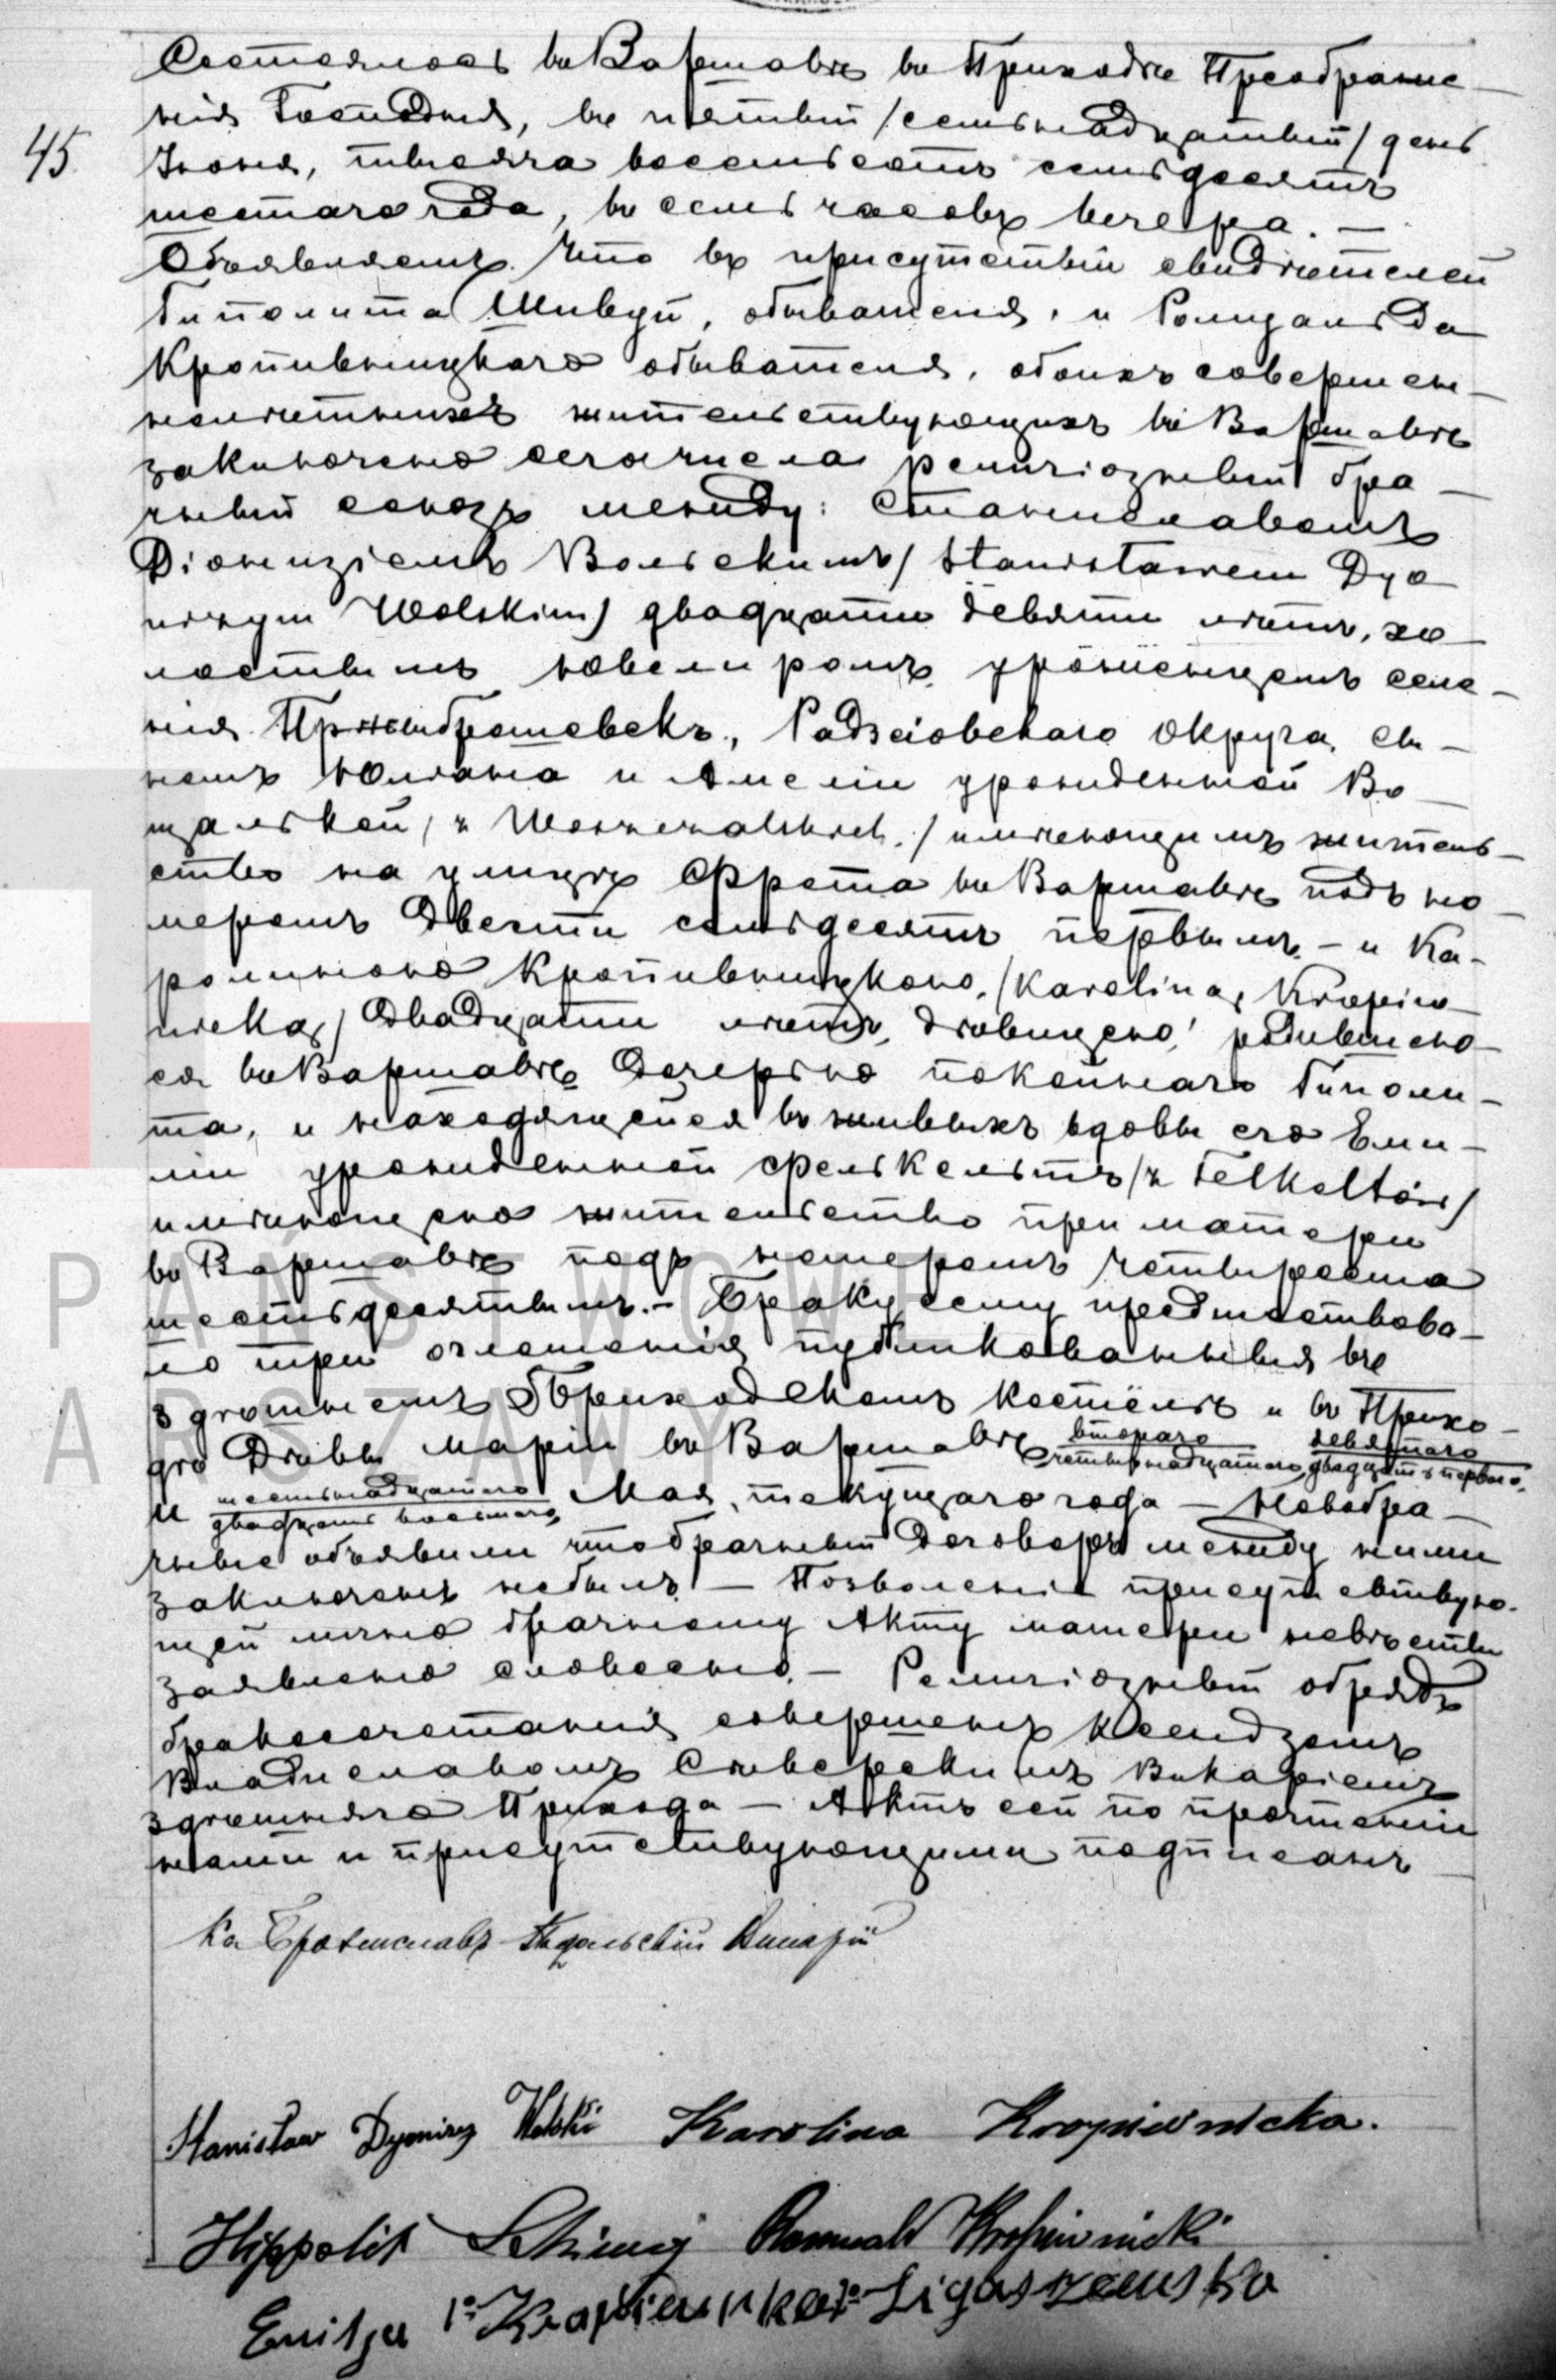 45.
Состоялось въ Варшавѣ въ Приходѣ Преображе-
нія Господня, въ пятый /семьнадцатый/ день
Іюня, тысяча восемьсотъ семьдесятъ
шестаго года, въ семь часовъ вечера. —
Объявляемъ что въ присутствіи свидѣтелей
Гиполита обывателя, и Ромуальда
Кропивницкаго обывателя, обоихъ совершен-
нолѣтнихъ жительствующихъ въ Варшавѣ
заключено сего числа религіозный бра-
чный союзъ между: Станиславомъ
Діонизіемъ Вольскимъ / Stanisławem Dyo-
nizym Wolskim / двадцати девяти лѣтъ, хо-
лостымъ ювелиромъ урожѣнцемъ селе-
нія Радзеіовскаго Округа, сы-
номъ Юліана и Амеліи урожденной Во-
имѣющимъ житель-
ство на улицѣ Фрета въ Варшавѣ подъ но-
меромъ Двести семьдесятъ первымъ – и Ка-
ролиною Кропивницкою, / Karoliną Kropiw-
nicką / Двадцати лѣтъ, дѣвицею, родившею-
ся въ Варшавѣ Дочерью покойнаго Гиполи-
та, и находящейся въ живыхъ вдовы его Еми-
ліи урожденной Фелькельтъ / z Felkeltów /
имѣющею жительство при матери
въ Варшавѣ подъ номеромъ четыреста
шестьдесятымъ. – Браку сему предшествова-
ло три оглашенія публикованныя въ
здѣшнемъ Приходскомъ Костёлѣ и въ Прихо-
дѣ Дѣвы Маріи въ Варшавѣ второго четырнадцатаго, девятаго двадцать перваго,
и шестьнадцатаго двадцать восьмаго Мая, текущаго года – Новобра-
чные объявили что брачный Договоръ между ними
заключенъ небылъ. – Позволеніе присутствую-
щей лично брачному Акту матери невѣсты
заявлено словесно. – Религіозный обрядъ
бракосочетанія совершенъ Ксендзомъ
Владиславомъ Сѣверскимъ Викаріемъ
здѣшняго Прихода – Актъ сей по прочтеніи
нами и присутствующими подписанъ
Кс Брониславъ Викарій
Stanisław Dyonizy Wolski Karolina Kropiwnicka.
Hippolit Romuald Kropiwnicki
Emilja 1º Kropiwnicka 2º Ligaszewska
PAŃSTWOWE
ARSZAWY